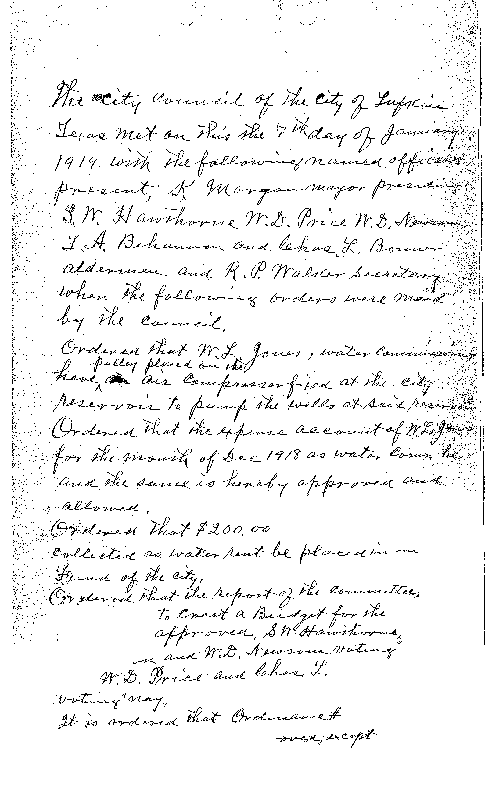 The city council of the city of Lufkin
Texas met on this the 7th day of January
1919 with the following named officers
present, K Morgan mayor presiding
S.W. Hawthorne W.D. Price W.D. Newsom
T.A. Bohannon and Chas L. Bonner
aldermen and R.P. Walder secretary
when the following orders were made
by the council.
Ordered that W.L. Jones, water commissioner
pulley placed on the
have air compressor fixed at the city
reservoir to pump the wells at said reservoir
Ordered that the expense account of W.L. Jones
for the month of Dec 1918 as water Com be
and the same is hereby approved and
allowed.
Ordered that $200.00
collected as water rent be placed in
Fund of the city.
Ordered that the report of the committee,
to Create a Budget for the
approved, S W Hawthorne,
and W.D. Newsom voting
W.D. Price and Chas L.
voting nay,
It is ordered that Ordinance #
except